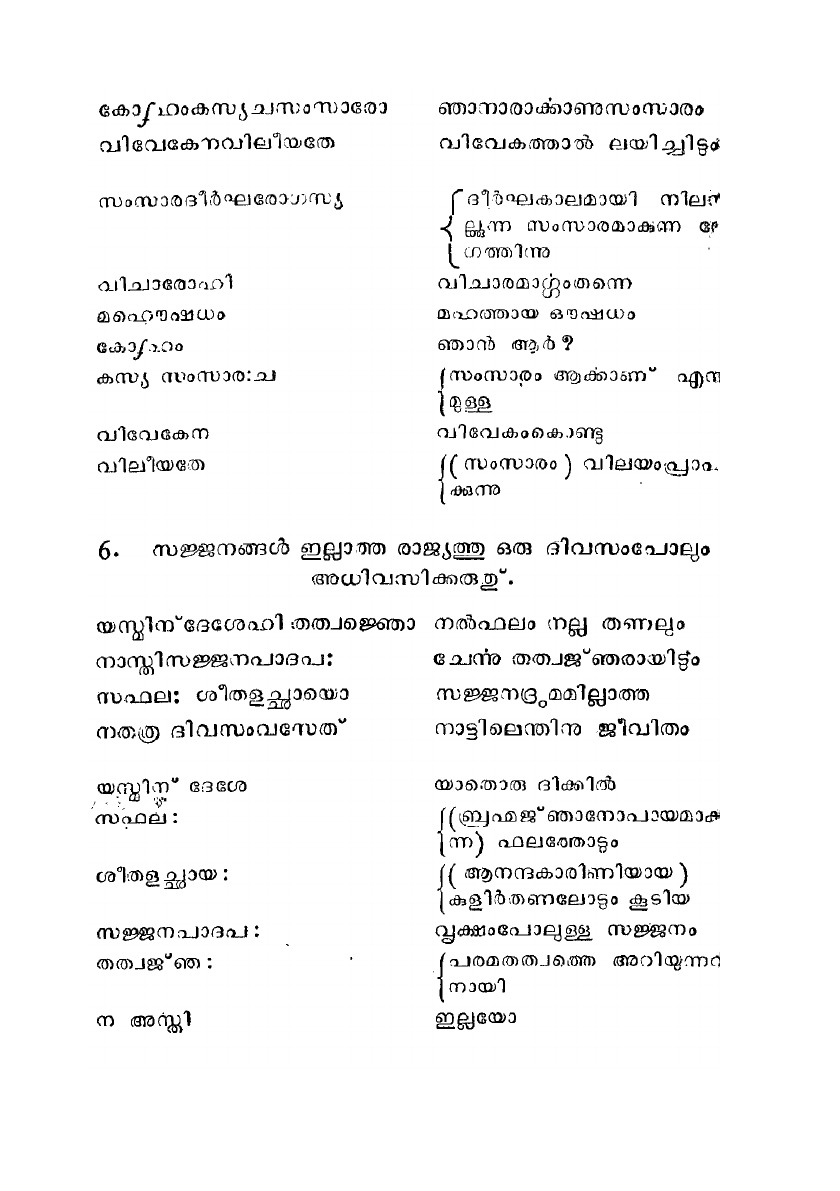 കോഽഹംകസ്യചസംസാരോ ഞാനാരാൎക്കാണുസംസാരം
വിവേകേനവിലീയതേ വിവേകത്താൽ ലയിച്ചിടും
സംസാരദീൎഘരോഗസ്യ ദീൎഘകാലമായി നിലനി
ല്ക്കുന്ന സംസാരമാകുന്ന രോ
ഗത്തിന്നു
വിചാരോഹി വിചാരമാൎഗ്ഗംതന്നെ
മഹൌഷധം മഹത്തായ ഔഷധം
കോഽഹം ഞാൻ ആർ?
കസ്യ സംസാര:ച സംസാരം ആൎക്കാണ് എന്നു
മുള്ള
വിവേകേന വിവേകംകൊണ്ടു
വിലീയതേ (സംസാരം) വിലയംപ്രാപി
ക്കുന്നു
6. സജ്ജനങ്ങൾ ഇല്ലാത്ത രാജ്യത്തു ഒരു ദിവസംപോലും
അധിവസിക്കരുതു്.
യസ്മിന് ദേശേഹി തത്വജ്ഞൊ നൽഫലം നല്ല തണലും
നാസ്തിസജ്ജനപാദപ: ചേൎന്നു തത്വജ്ഞരായിടും
സഫല: ശീതളച്ഛായൊ സജ്ജനദ്രുമമില്ലാത്ത
നതത്ര ദിവസംവസേത് നാട്ടിലെന്തിനു ജീവിതം
യസ്മിന് ദേശേ യാതൊരു ദിക്കിൽ
സഫല: ((ബ്രഹ്മജ്ഞാനോപായമാകു
ന്ന) ഫലത്തോടും
ശീതളച്ഛായ: (ആനന്ദകാരിണിയായ)
കുളിർതണലോടും കൂടിയ
സജ്ജനപാദപ: വൃക്ഷംപോലുള്ള സജ്ജനം
തത്വജ്ഞ: പരമതത്വത്തെ അറിയുന്നവ
നായി
ന അസ്തി ഇല്ലയോ